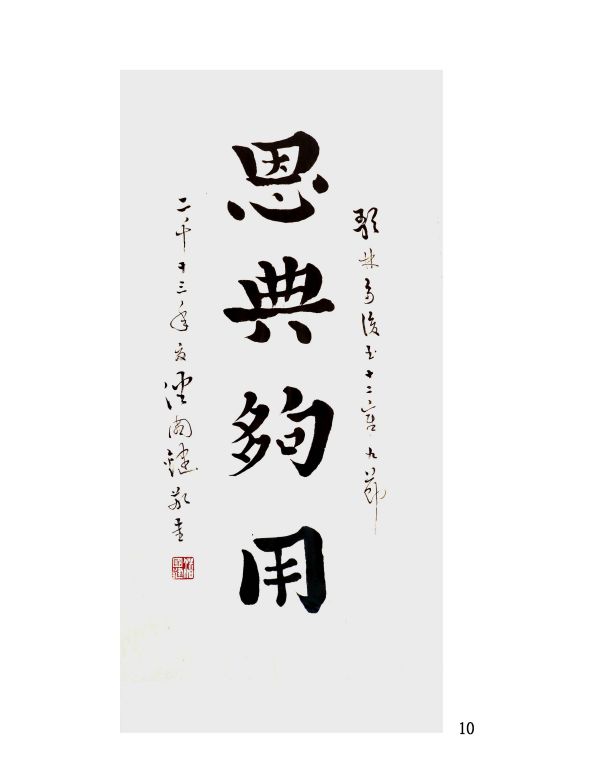 歌林多後書十二章九節
恩典夠用
二千十三年夏潘國鍵敬書
10